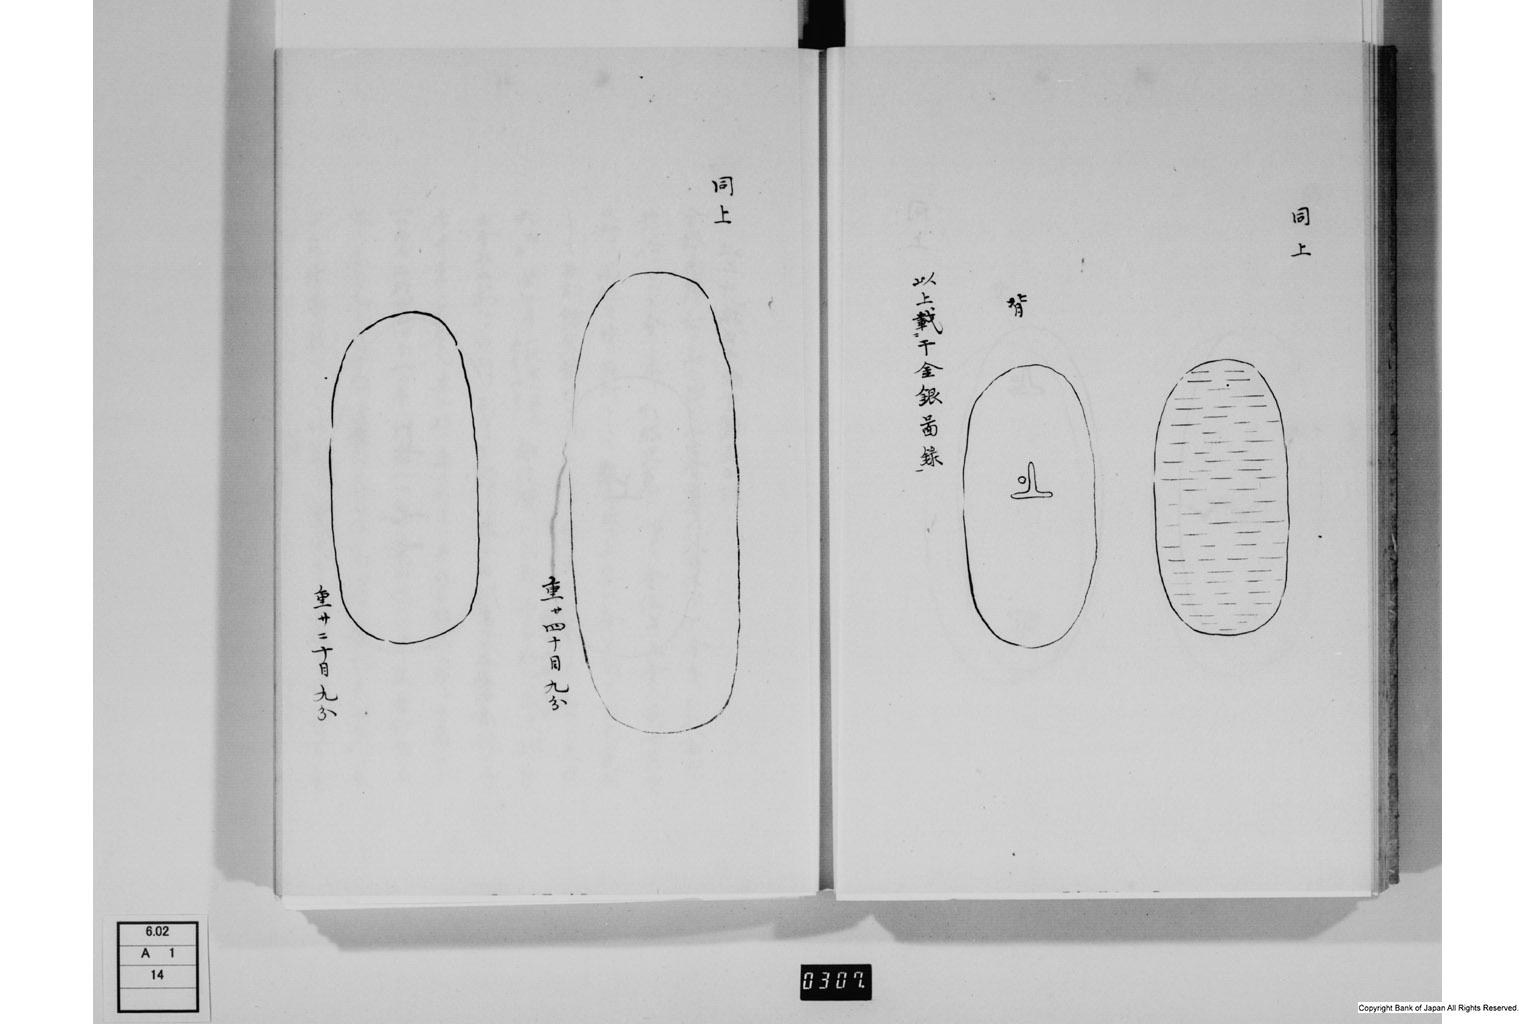 同上
背
以上載于金銀啚録
同上
重廿四十目九分
重廿二十目九分
6.02
A 1
14
0307
Copyright Bank of Japan All Rights Reserved.